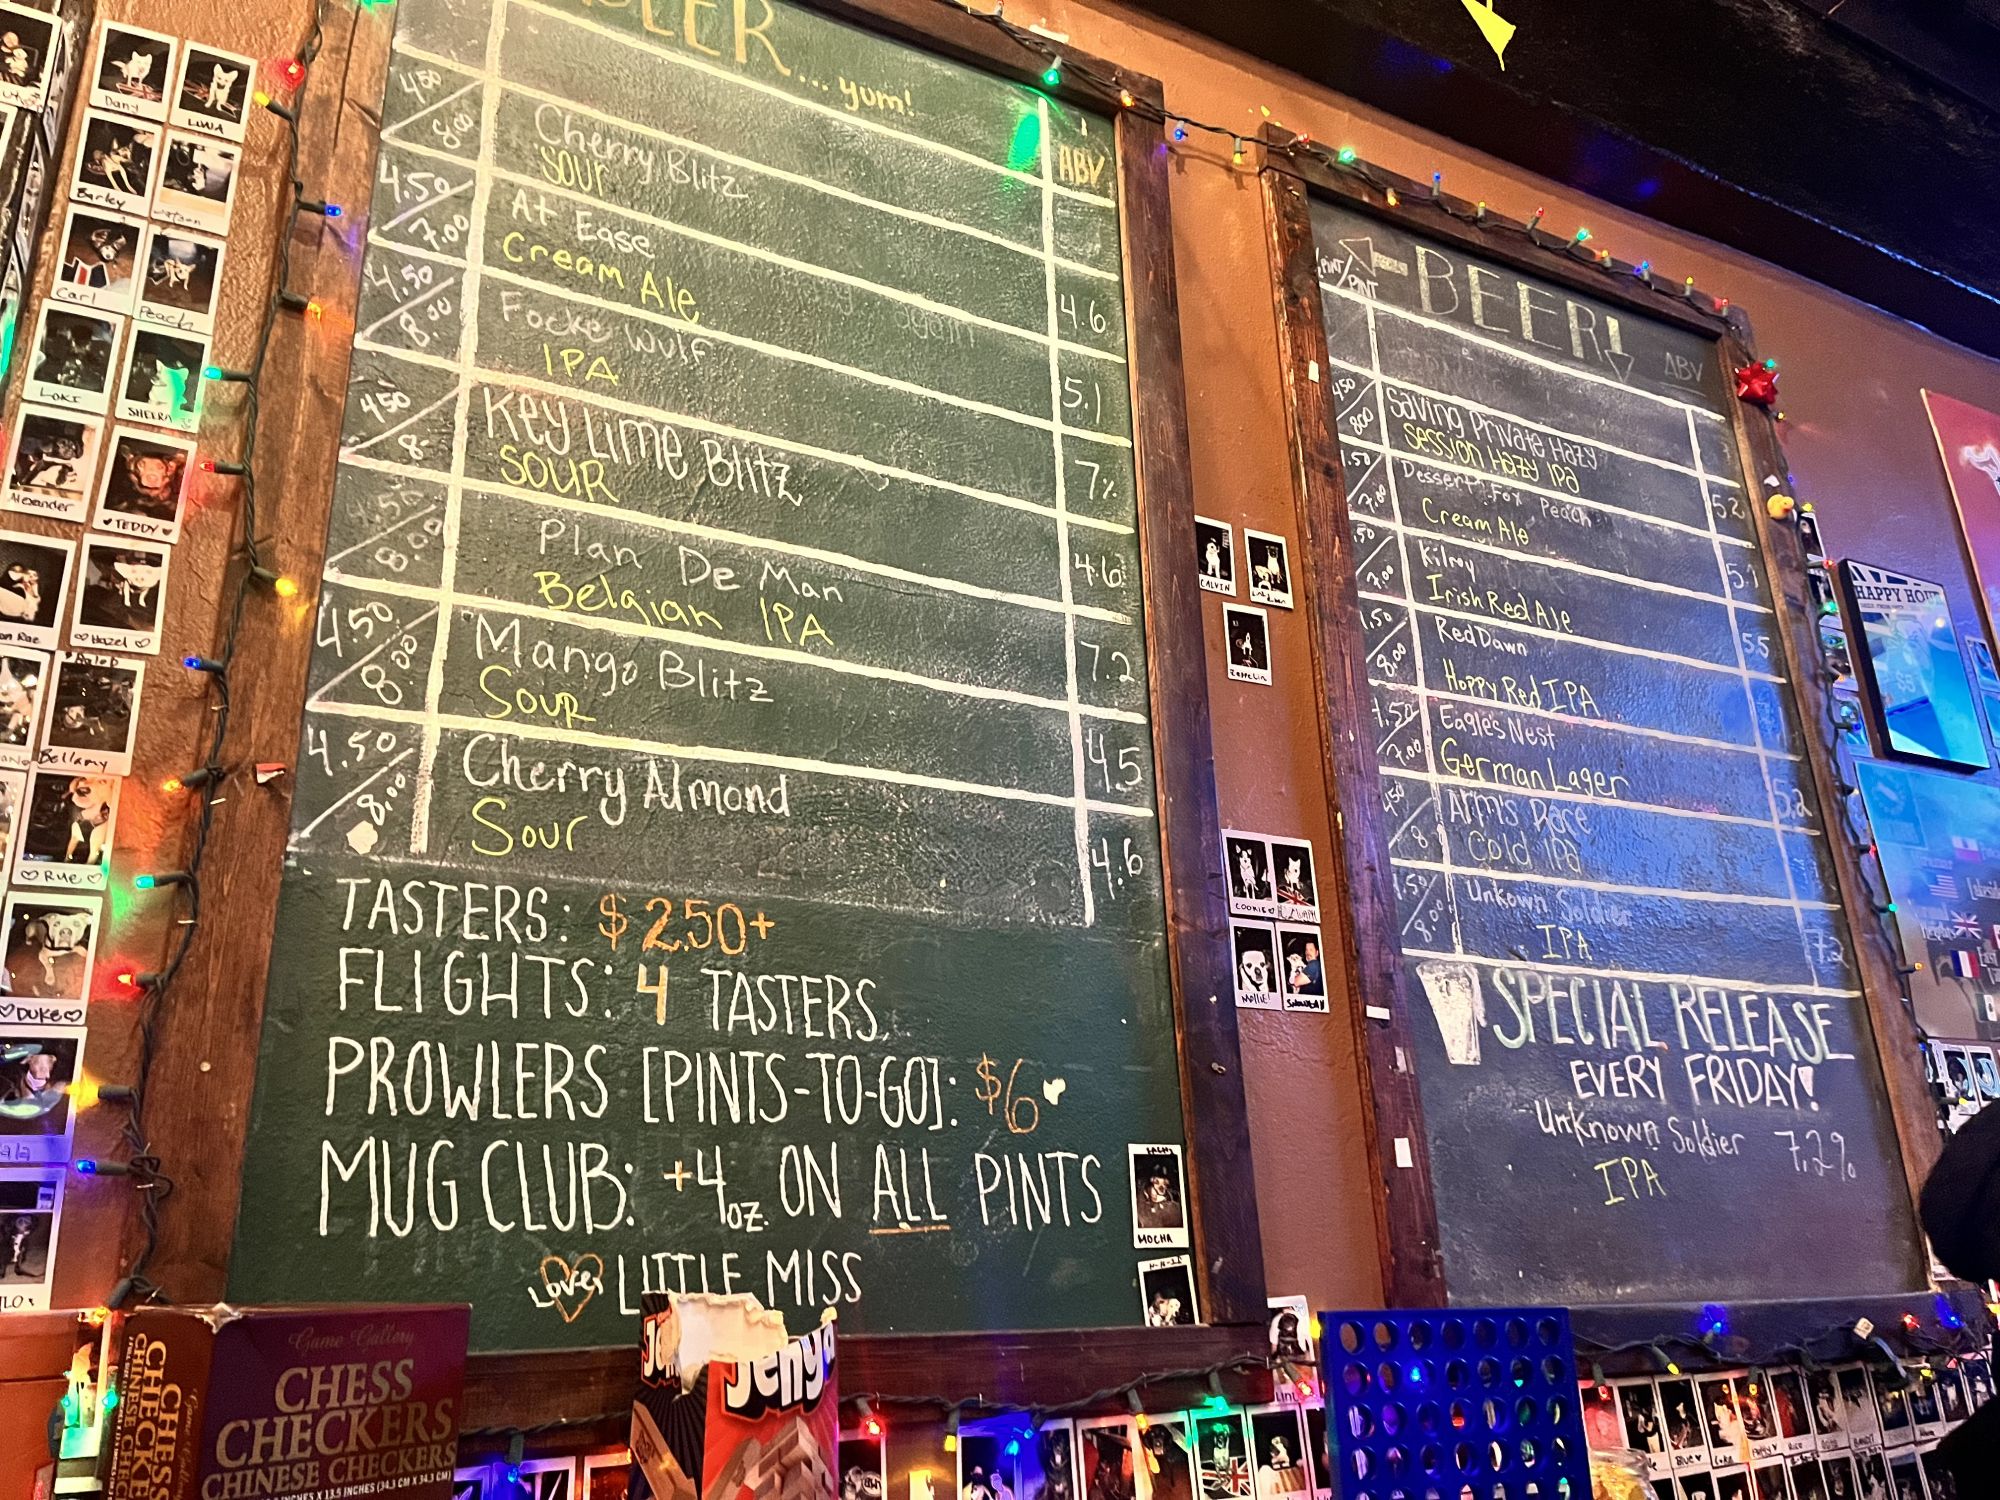 BEER... yum!
ABV
4.50
8.00
Cherry Blitz
SOUR
4.6
4.50
7.00
At Ease
Cream Ale
5.1
4.50
8.00
Focke Wulf
IPA
7%
450
8-
Key Lime Blitz
SOUR
4.6
4.50
8.00
Plan De Man
Belgian IPA
7.2
4.50
8.00
Mango Blitz
Sour
4.5
4.50
8.00
Cherry Almond
Sour
4.6
TASTERS: $2.50+
FLIGHTS: 4 TASTERS
PROWLERS [PINTS-TO-GO]: $6
MUG CLUB: +4oz. ON ALL PINTS
Lover LITTLE MISS
BEER!
ABV
PINT
450
800
Saving Private Hazy
Session Hazy IPA
5.2
7.00
Dessert Fox Peach
Cream Ale
5.1
7.00
Kilroy
Irish Red Ale
5.5
8.00
Red Dawn
Hoppy Red IPA
7.00
Eagle's Nest
German Lager
5.2
450
8
Arms Race
Cold IPA
8.00
Unkown Soldier
IPA
7.2
SPECIAL RELEASE
EVERY FRIDAY!
Unknown Soldier 7.2%
IPA
Dany
LUNA
Barley
Carl
Peach
LOKI
SHEERA
Alexander
TEDDY
Hazel
Bellamy
Rue
DUKE
CALVIN
Zeppelin
COOKIE
MOLLIE
MOCHA
HAPPY HOUR
Game Gallery
CHESS
CHECKERS
CHINESE CHECKERS
Jenga